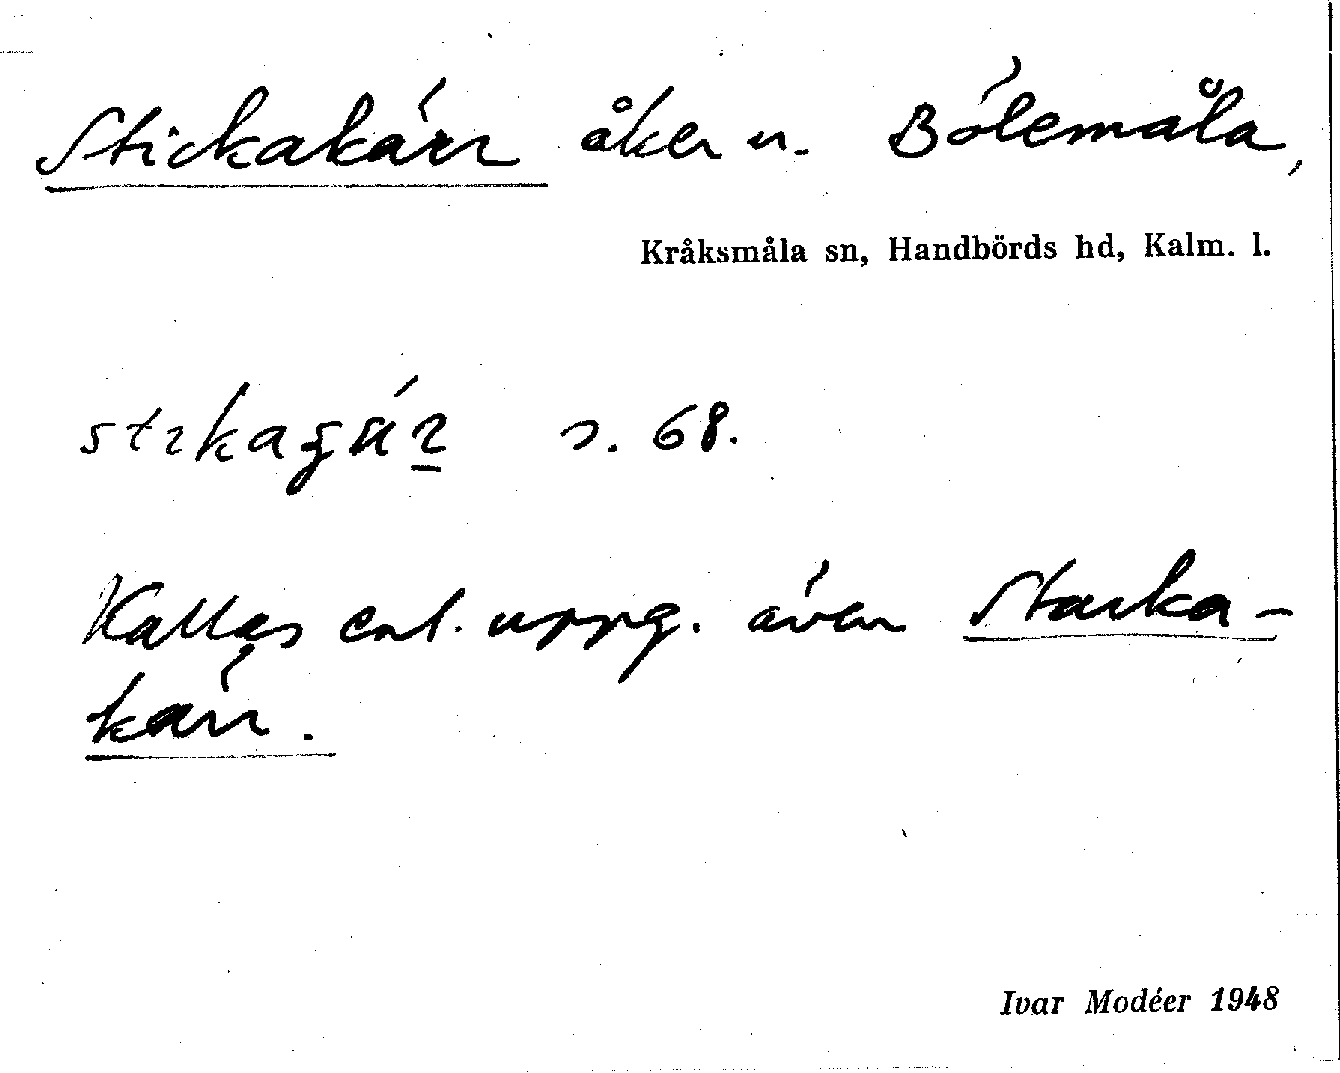 Stickakärr åker u. Bölemåla,
Kråksmåla sn, Handbörds hd, Kalm. l.
s. 68.
Kallas enl. uppg. även Starka-
kärr.
Ivar Modéer 1948